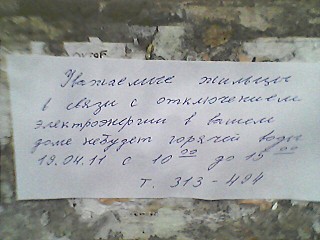 Уважаемые жильцы
в связи с отключением
электроэнергии в вашем
доме небудет горячей воды
19.04.11 с 10 00 до 15 00
т. 313-494